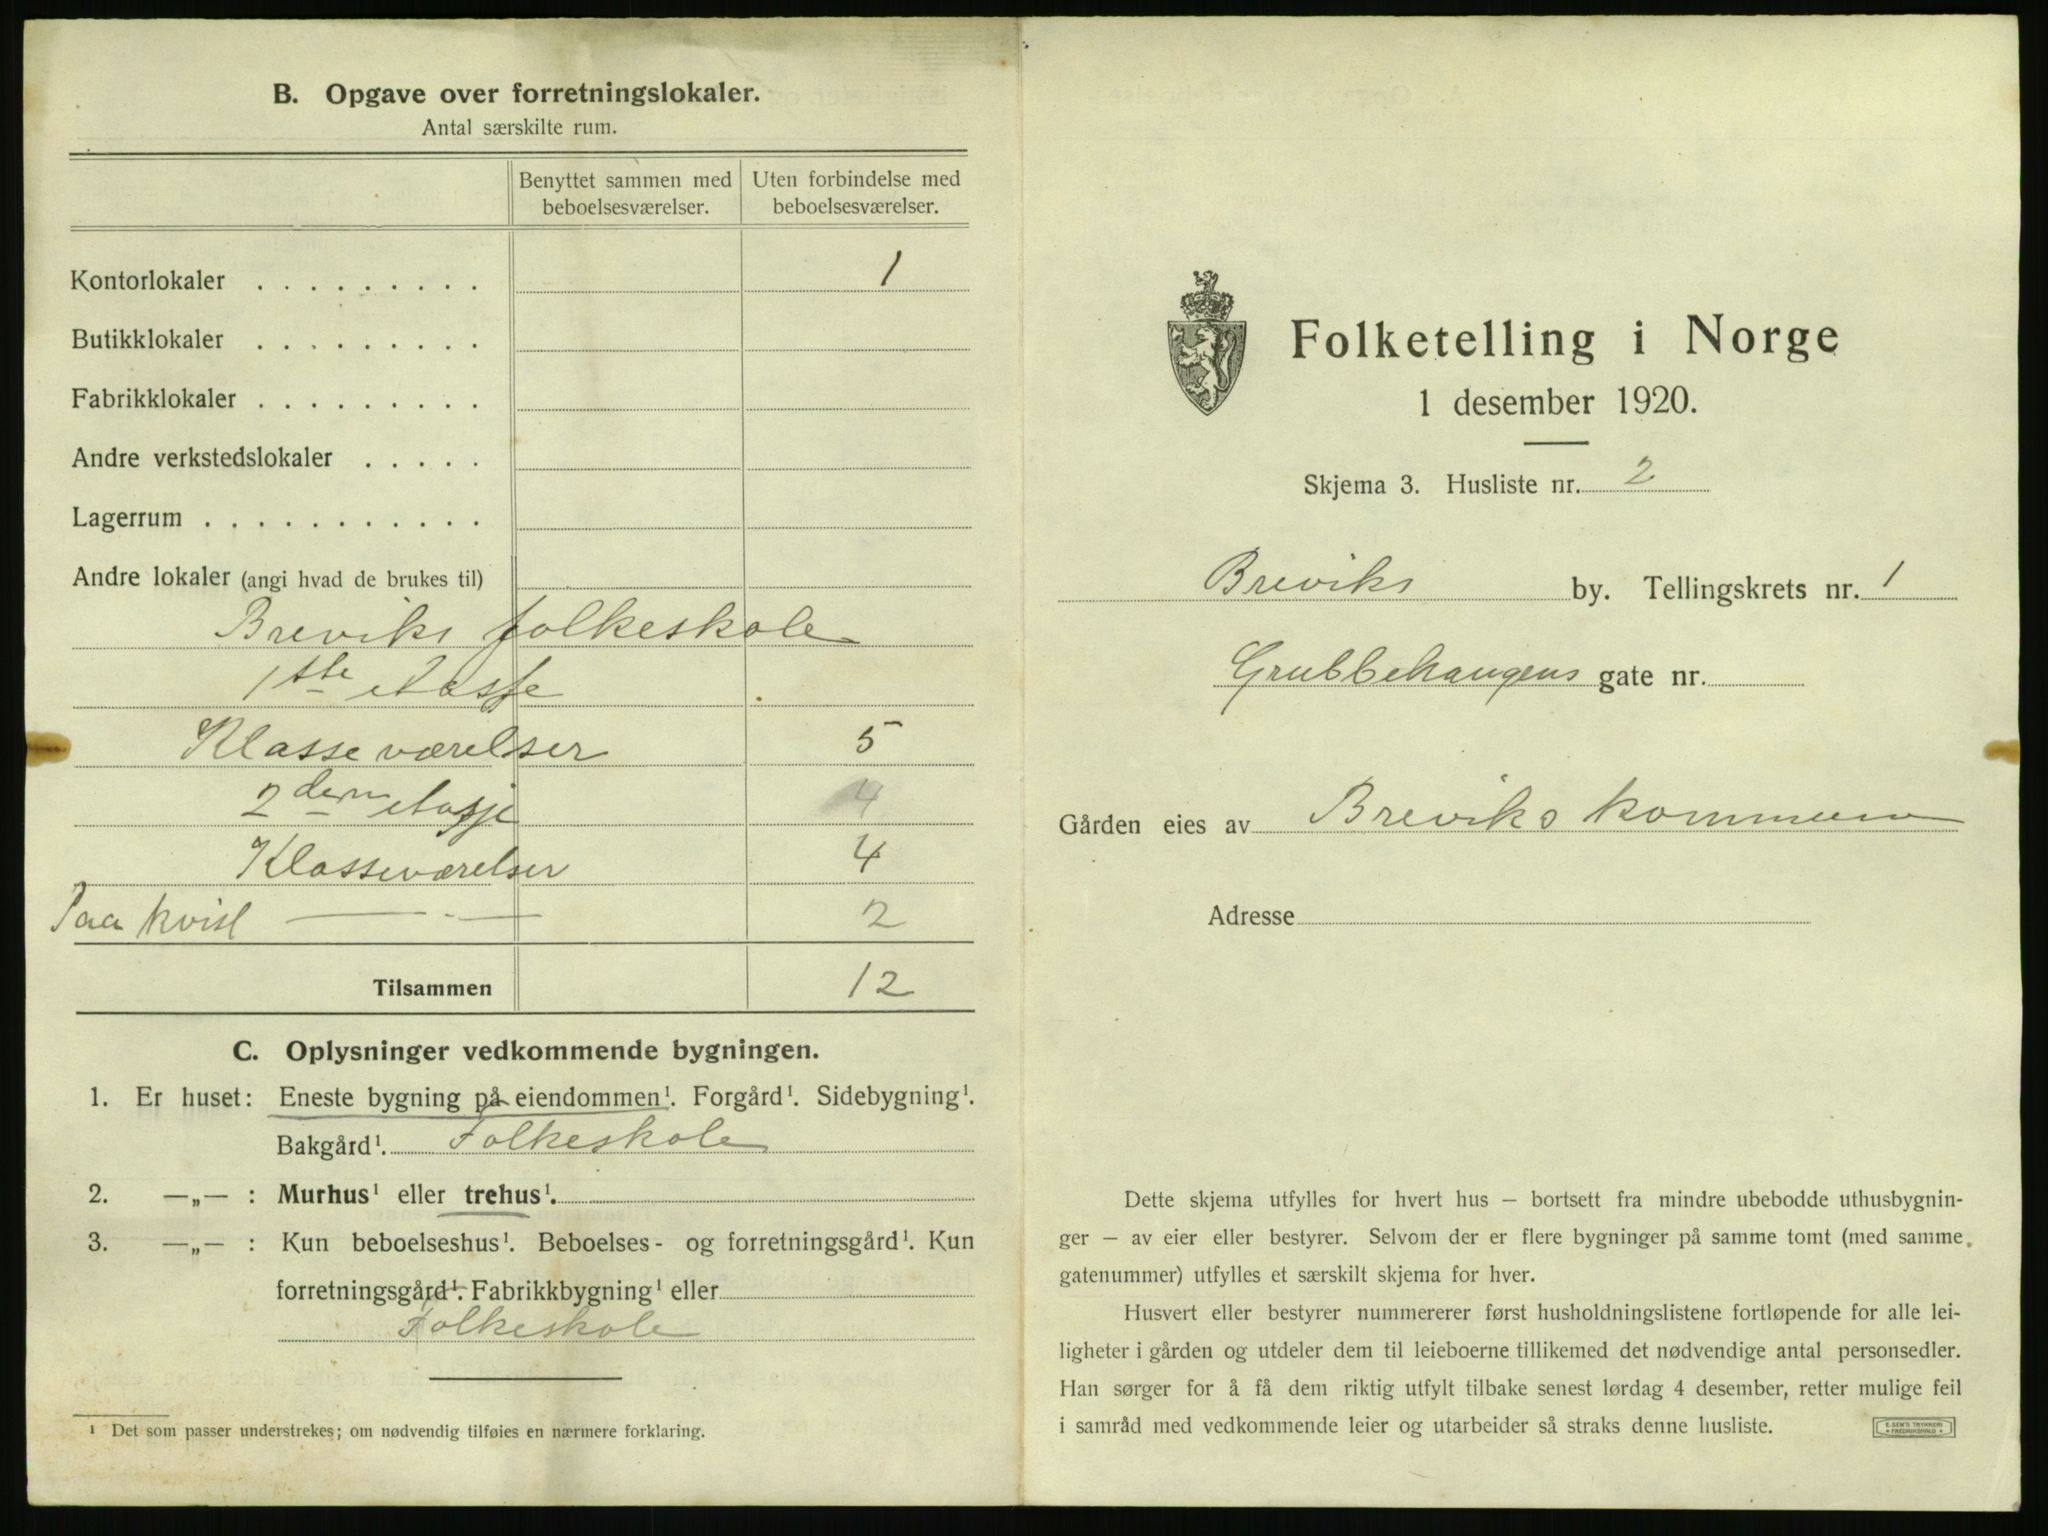 B. Opgave over forretningslokaler.
Antal særskilte rum.
Benyttet sammen med beboelsesværelser.
Uten forbindelse med beboelsesværelser.
Kontorlokaler . . . . . . . . . 1
Butikklokaler . . . . . . . . .
Fabrikklokaler . . . . . . . . .
Andre verkstedslokaler . . . . .
Lagerrum . . . . . . . . . . .
Andre lokaler (angi hvad de brukes til)
Breviks folkeskole
1ste etasje
Klasseværelser 5
2den etasje 4
Klasseværelser 4
Paa kvist — " — 2
Tilsammen 12
C. Oplysninger vedkommende bygningen.
1. Er huset: Eneste bygning på eiendommen¹. Forgård¹. Sidebygning¹.
Bakgård¹. Folkeskole
2. —„— : Murhus¹ eller trehus¹.
3. —„— : Kun beboelseshus¹. Beboelses- og forretningsgård¹. Kun
forretningsgård¹. Fabrikkbygning¹ eller
Folkeskole
¹ Det som passer understrekes; om nødvendig tilføies en nærmere forklaring.
Folketelling i Norge
1 desember 1920.
Skjema 3. Husliste nr. 2
Breviks by. Tellingskrets nr. 1
Grubbehaugens gate nr.
Gården eies av Breviks kommune
Adresse
Dette skjema utfylles for hvert hus – bortsett fra mindre ubebodde uthusbygnin-
ger – av eier eller bestyrer. Selvom der er flere bygninger på samme tomt (med samme
gatenummer) utfylles et særskilt skjema for hver.
Husvert eller bestyrer nummererer først husholdningslistene fortløpende for alle lei-
ligheter i gården og utdeler dem til leieboerne tillikemed det nødvendige antal personsedler.
Han sørger for å få dem riktig utfylt tilbake senest lørdag 4 desember, retter mulige feil
i samråd med vedkommende leier og utarbeider så straks denne husliste.
E. SEM'S TRYKKERI
FREDRIKSHALD